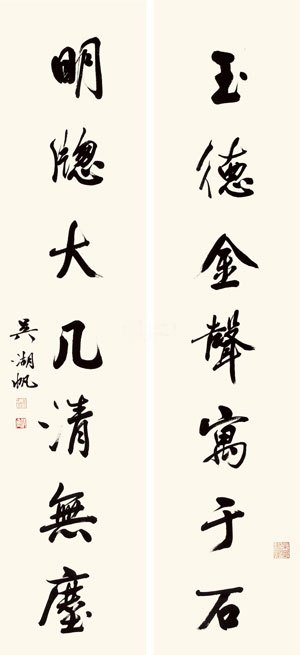 玉德金聲寓于石
明牎大几清無塵
吳湖帆